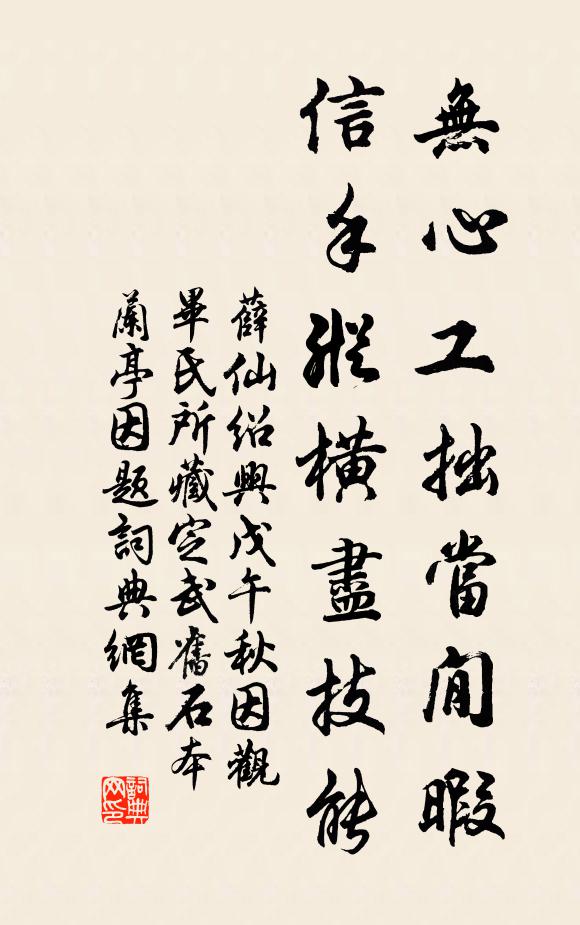 無心工拙當閒暇
信手縱橫盡技能
薛仙紹興戊午秋因觀
畢氏所藏定武舊石本
蘭亭因題詞典網集
詞典網印